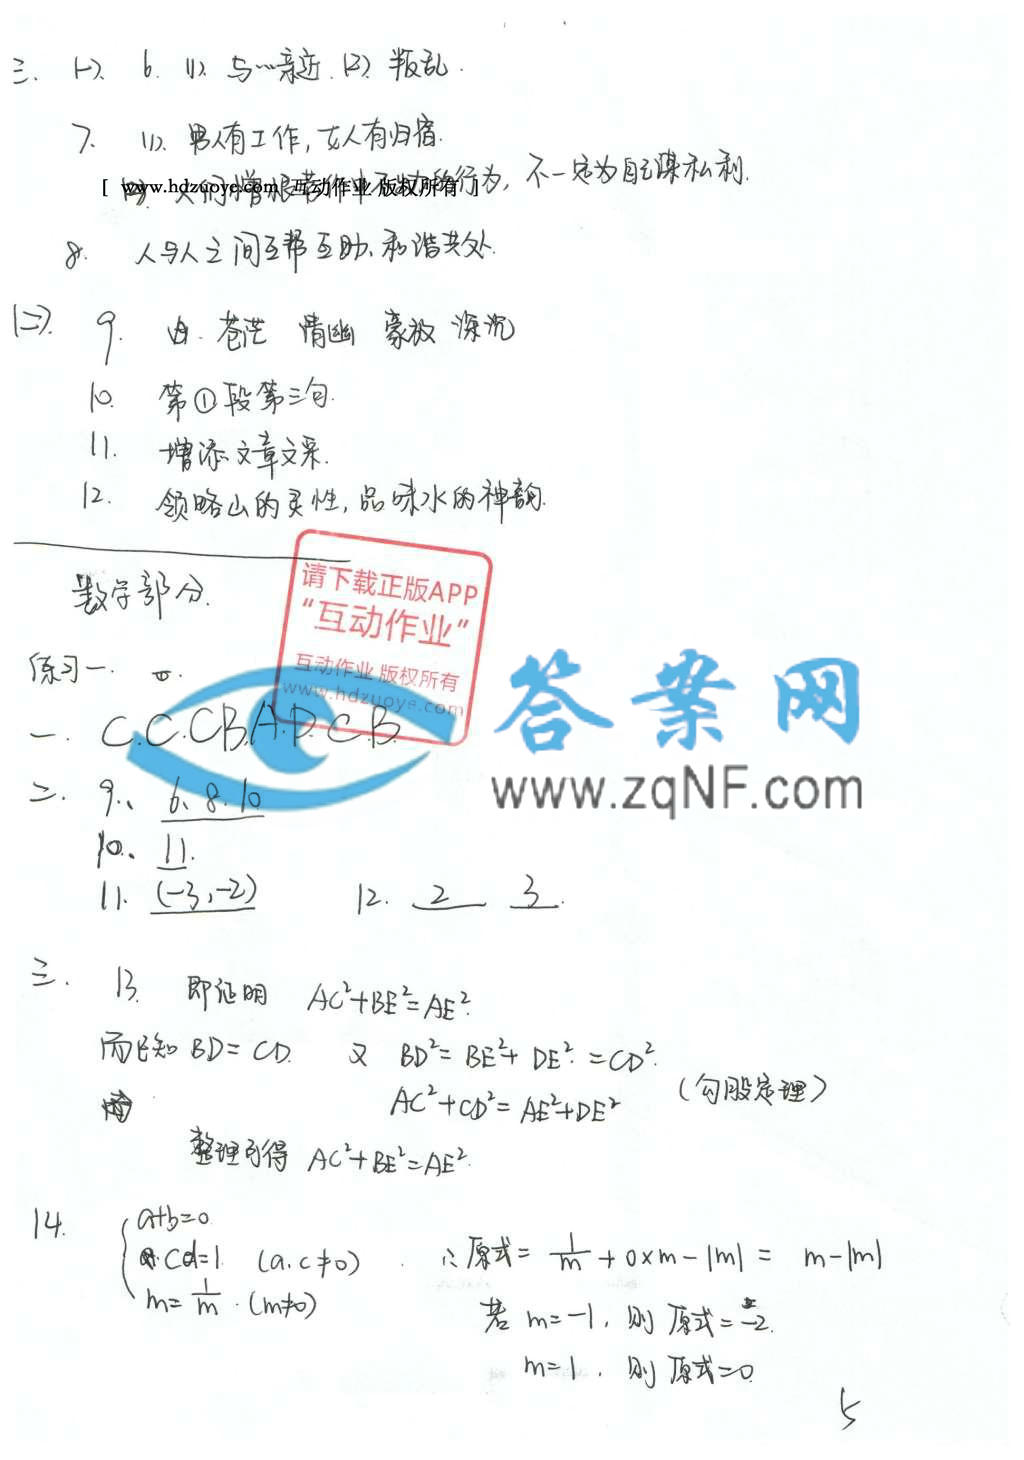 三. (一). 6. (1). 与…亲近. (2). 叛乱.
7. (1). 男人有工作, 女人有归宿.
[ www.hdzuoye.com 互动作业 版权所有 ]
行为, 不一定为自己谋私利.
8. 人与人之间互帮互助、和谐共处.
(二). 9. 苍茫 清幽 豪放 深沉
10. 第①段第三句.
11. 增添文章文采.
12. 领略山的灵性, 品味水的神韵.
数学部分.
请下载正版APP
“互动作业”
互动作业 版权所有
www.hdzuoye.com
练习一.
答案网
www.zqNF.com
一. C.C.CB.A.D.C.B.
二. 9.、 6、8.10
10、 11.
11. (-3,-2) 12. 2 3.
三. 13. 即证明 AC²+BE²=AE².
而已知 BD=CD. 又 BD²=BE²+DE².=CD².
AC²+CD²=AE²+DE² (勾股定理)
整理可得 AC²+BE²=AE².
14. a+b=0
cd=1. (a.c≠0) ∴原式= 1/m +0×m-|m|= m-|m|
m= 1/m .(m≠0) 若 m=-1, 则 原式=-2.
m=1, 则 原式=0.
5